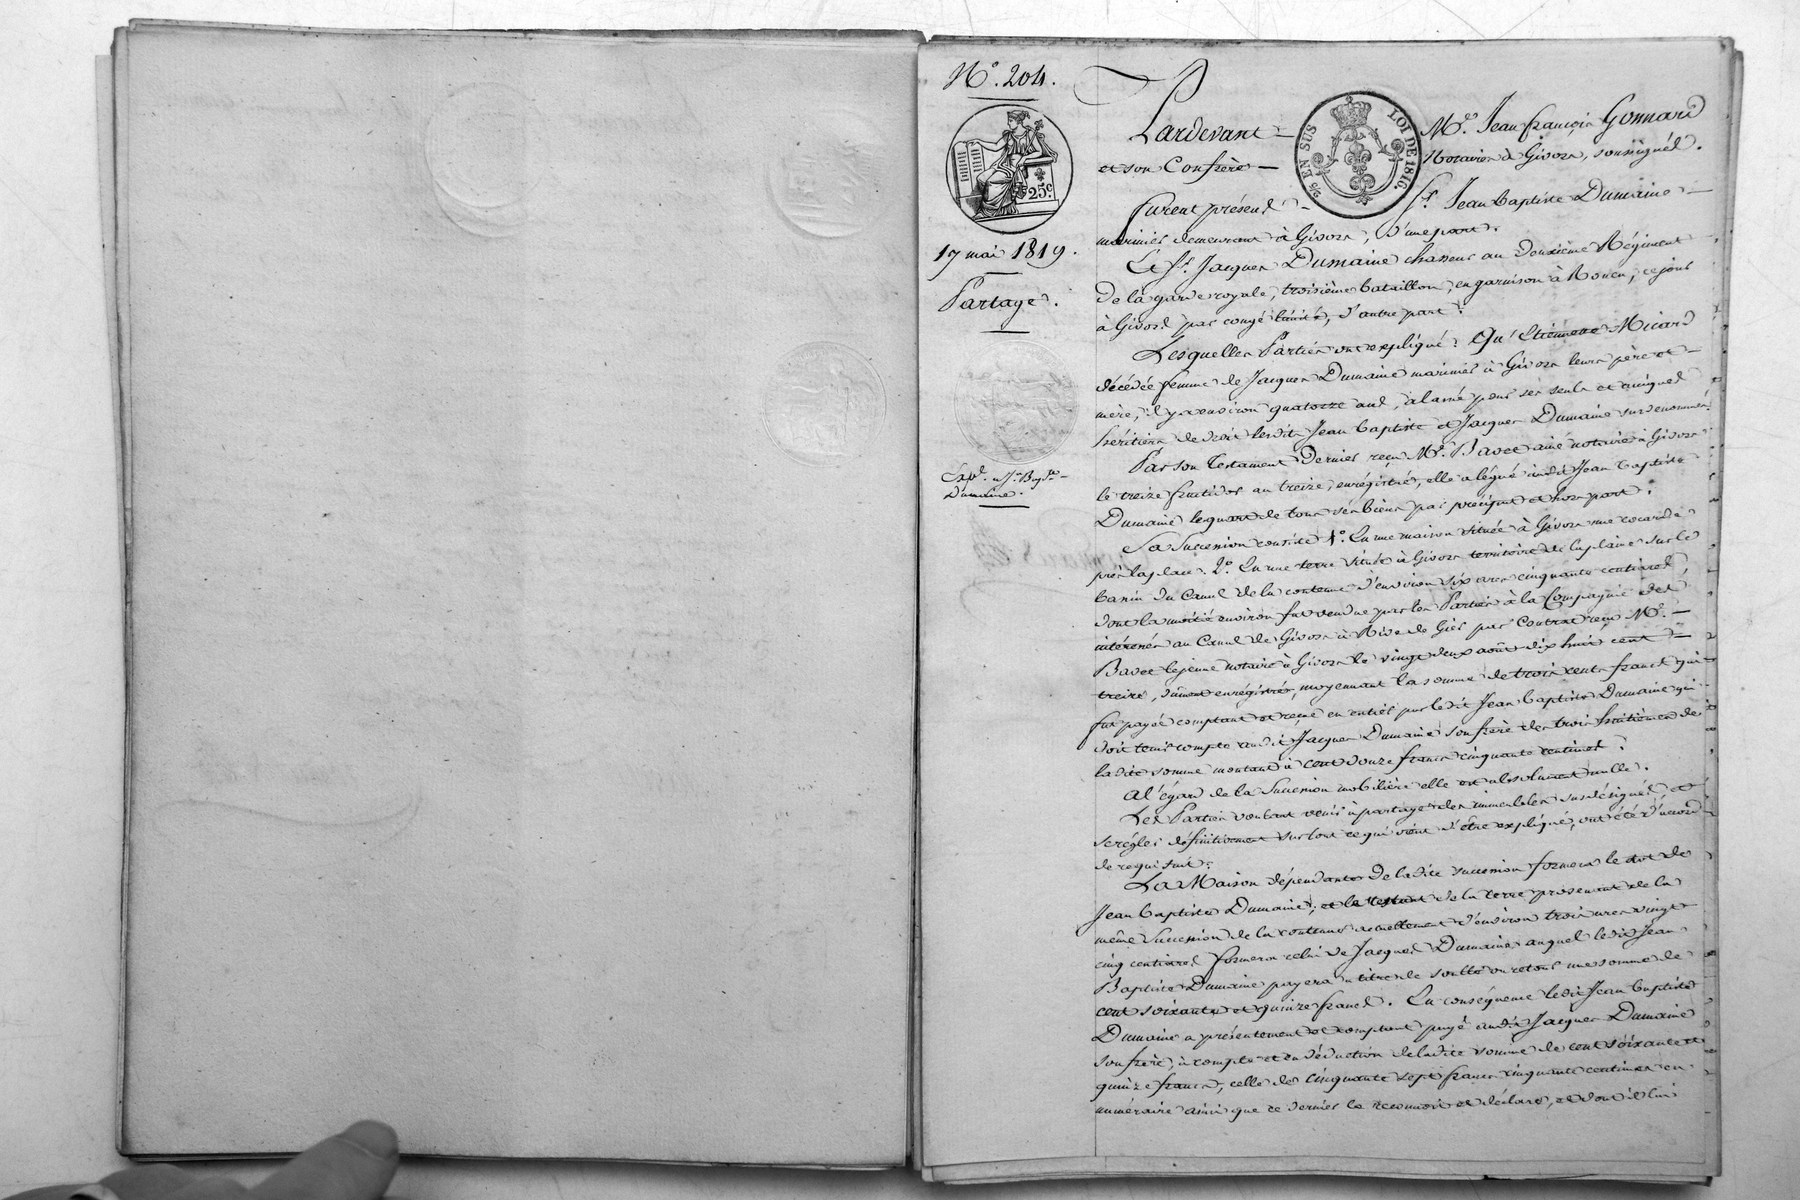 N.° 204.
25c
17 mai 1819.
Partage.
Exp.é à J.n B.pte
Dumaine.
EN SUS
LOI DE 1816.
Pardevant M.e Jean françois Gonnard
et son Confrère Notaires à Givors, soussignés.
furent présens S.r Jean Baptiste Dumaine
marinier demeurant à Givors, d'une part.
Le S.r Jacques Dumaine chasseur au deuxième Régiment
de la garde royale, troisième bataillon, en garnison à Rouen, ce jour
à Givors par congé limité, d'autre part.
Lesquelles Parties ont expliqué: Qu'Etiennette Micard
décédée femme de Jacques Dumaine marinier à Givors leurs père et
mère, il y a environ quatorze ans, a laissé pour ses seuls et uniques
héritiers de droit lesdits Jean Baptiste et Jacques Dumaine surdenommés.
Par son Testament dernier reçu M.e Bavet ainé notaire à Givors
le treize fructidor an treize, enrégistré, elle a légué audit Jean Baptiste
Dumaine le quart de tous ses biens par préciput et hors part.
Sa Succession consiste 1.° En une maison située à Givors rue
près la place. 2.° En une terre située à Givors territoire de la plaine sur le
bassin du Canal de la contenue d'environ six ares cinquante centiares,
dont la moitié environ fut vendue par les Parties à la Compagnie des
intéressés au Canal de Givors à Rive de Gier par Contrat reçu M.e
Bavet le jeune notaire à Givors le vingt deux août dix huit cent
treize, dûment enrégistré, moyennant la somme de trois cents francs qui
fut payée comptant et reçue en entier par ledit Jean Baptiste Dumaine qui
doit tenir compte audit Jacques Dumaine son frère des trois huitièmes de
ladite somme montant à cent douze francs cinquante centimes.
A l'égard de la Succession mobilière elle est absolument nulle.
Les Parties voulant venir à partage des immeubles susdésignés, et
se régler définitivement sur tout ce qui vient d'être expliqué, ont été d'accord
de ce qui suit:
La Maison dépendante de ladite succession formera le lot de
Jean Baptiste Dumaine; et le restant de la terre provenant de la
même Succession de la contenue actuellement d'environ trois ares vingt
cinq centiares formera celui de Jacques Dumaine auquel ledit Jean
Baptiste Dumaine payera à titre de soulte ou retour une somme de
cent soixante et quinze francs. En conséquence ledit Jean Baptiste
Dumaine a présentement et comptant payé audit Jacques Dumaine
son frère, à compte et en déduction de ladite somme de cent soixante et
quinze francs, celle de cinquante sept francs cinquante centimes en
numéraire ainsi que ce dernier le reconnoit et déclare, et dont il lui